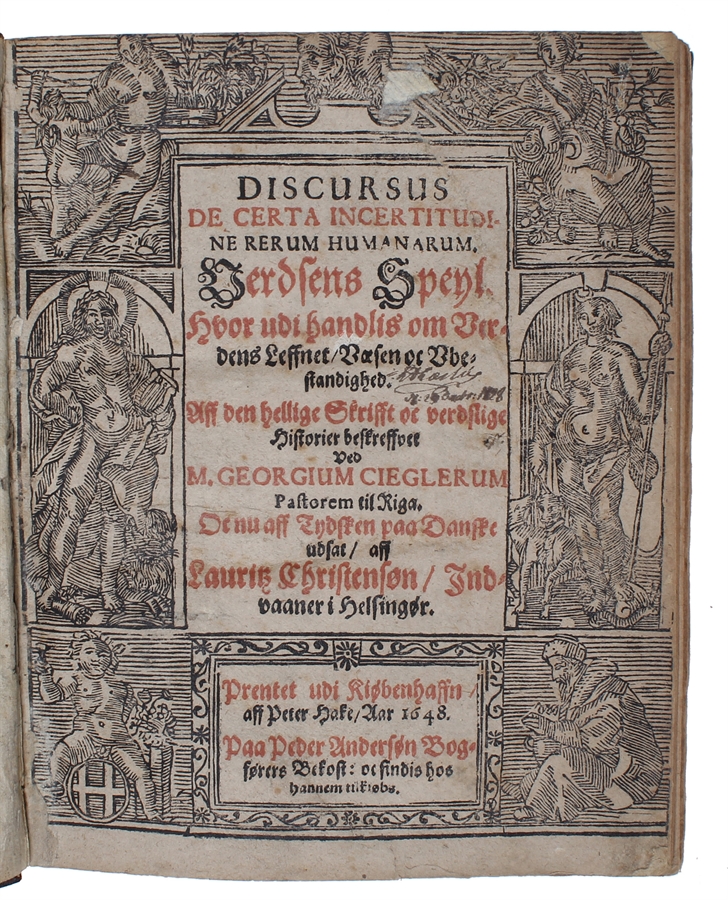 DISCURSUS
DE CERTA INCERTITUDI-
NE RERUM HUMANARUM.
Verdsens Speyl.
Hvor udi handlis om Ver-
dens Leffnet/Væsen oc Vbe-
standighed.
Aff den hellige Skrifft oc verdslige
Historier beskreffvet
ved
M. GEORGIUM CIEGLERUM
Pastorem til Riga.
Oc nu aff Tydsken paa Danske
udsat/ aff
Lauritz Christensøn/ Ind-
vaaner i Helsingør.
Prentet udi Kiøbenhaffn/
aff Peter Hake/Aar 1648.
Paa Peder Andersøn Bog-
førers Bekost: oc findis hos
hannem til kiøbs.